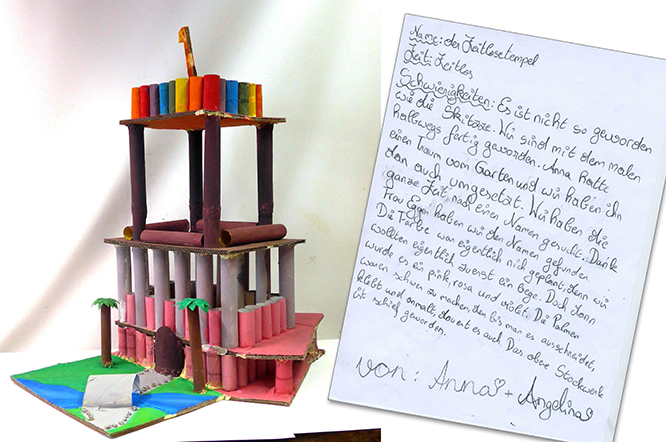 Name: der Zeitlosetempel
Zeit: Zeitlos
Schwierigkeiten: Es ist nicht so geworden
wie die Skitzze. Wir sind mit dem malen
halbwegs fertig geworden. Anna hatte
einen Traum vom Garten und wir haben ihn
dan auch umgesetzt. Wir haben die
ganze Zeit nach einen Namen gesucht. Dank
Frau Egger haben wir den Namen gefunden.
Die Farbe war eigentlich nich geplant, denn wir
wollten eigentlich zuerst ein Beige. Doch dann
wurde es ein pink, rosa und violet. Die Palmen
waren schwer zu machen, den bis man es ausschneidet,
klebt und anmalt, dauert es auch. Das obere Stockwerk
ist schief geworden.
von: Anna + Angelina